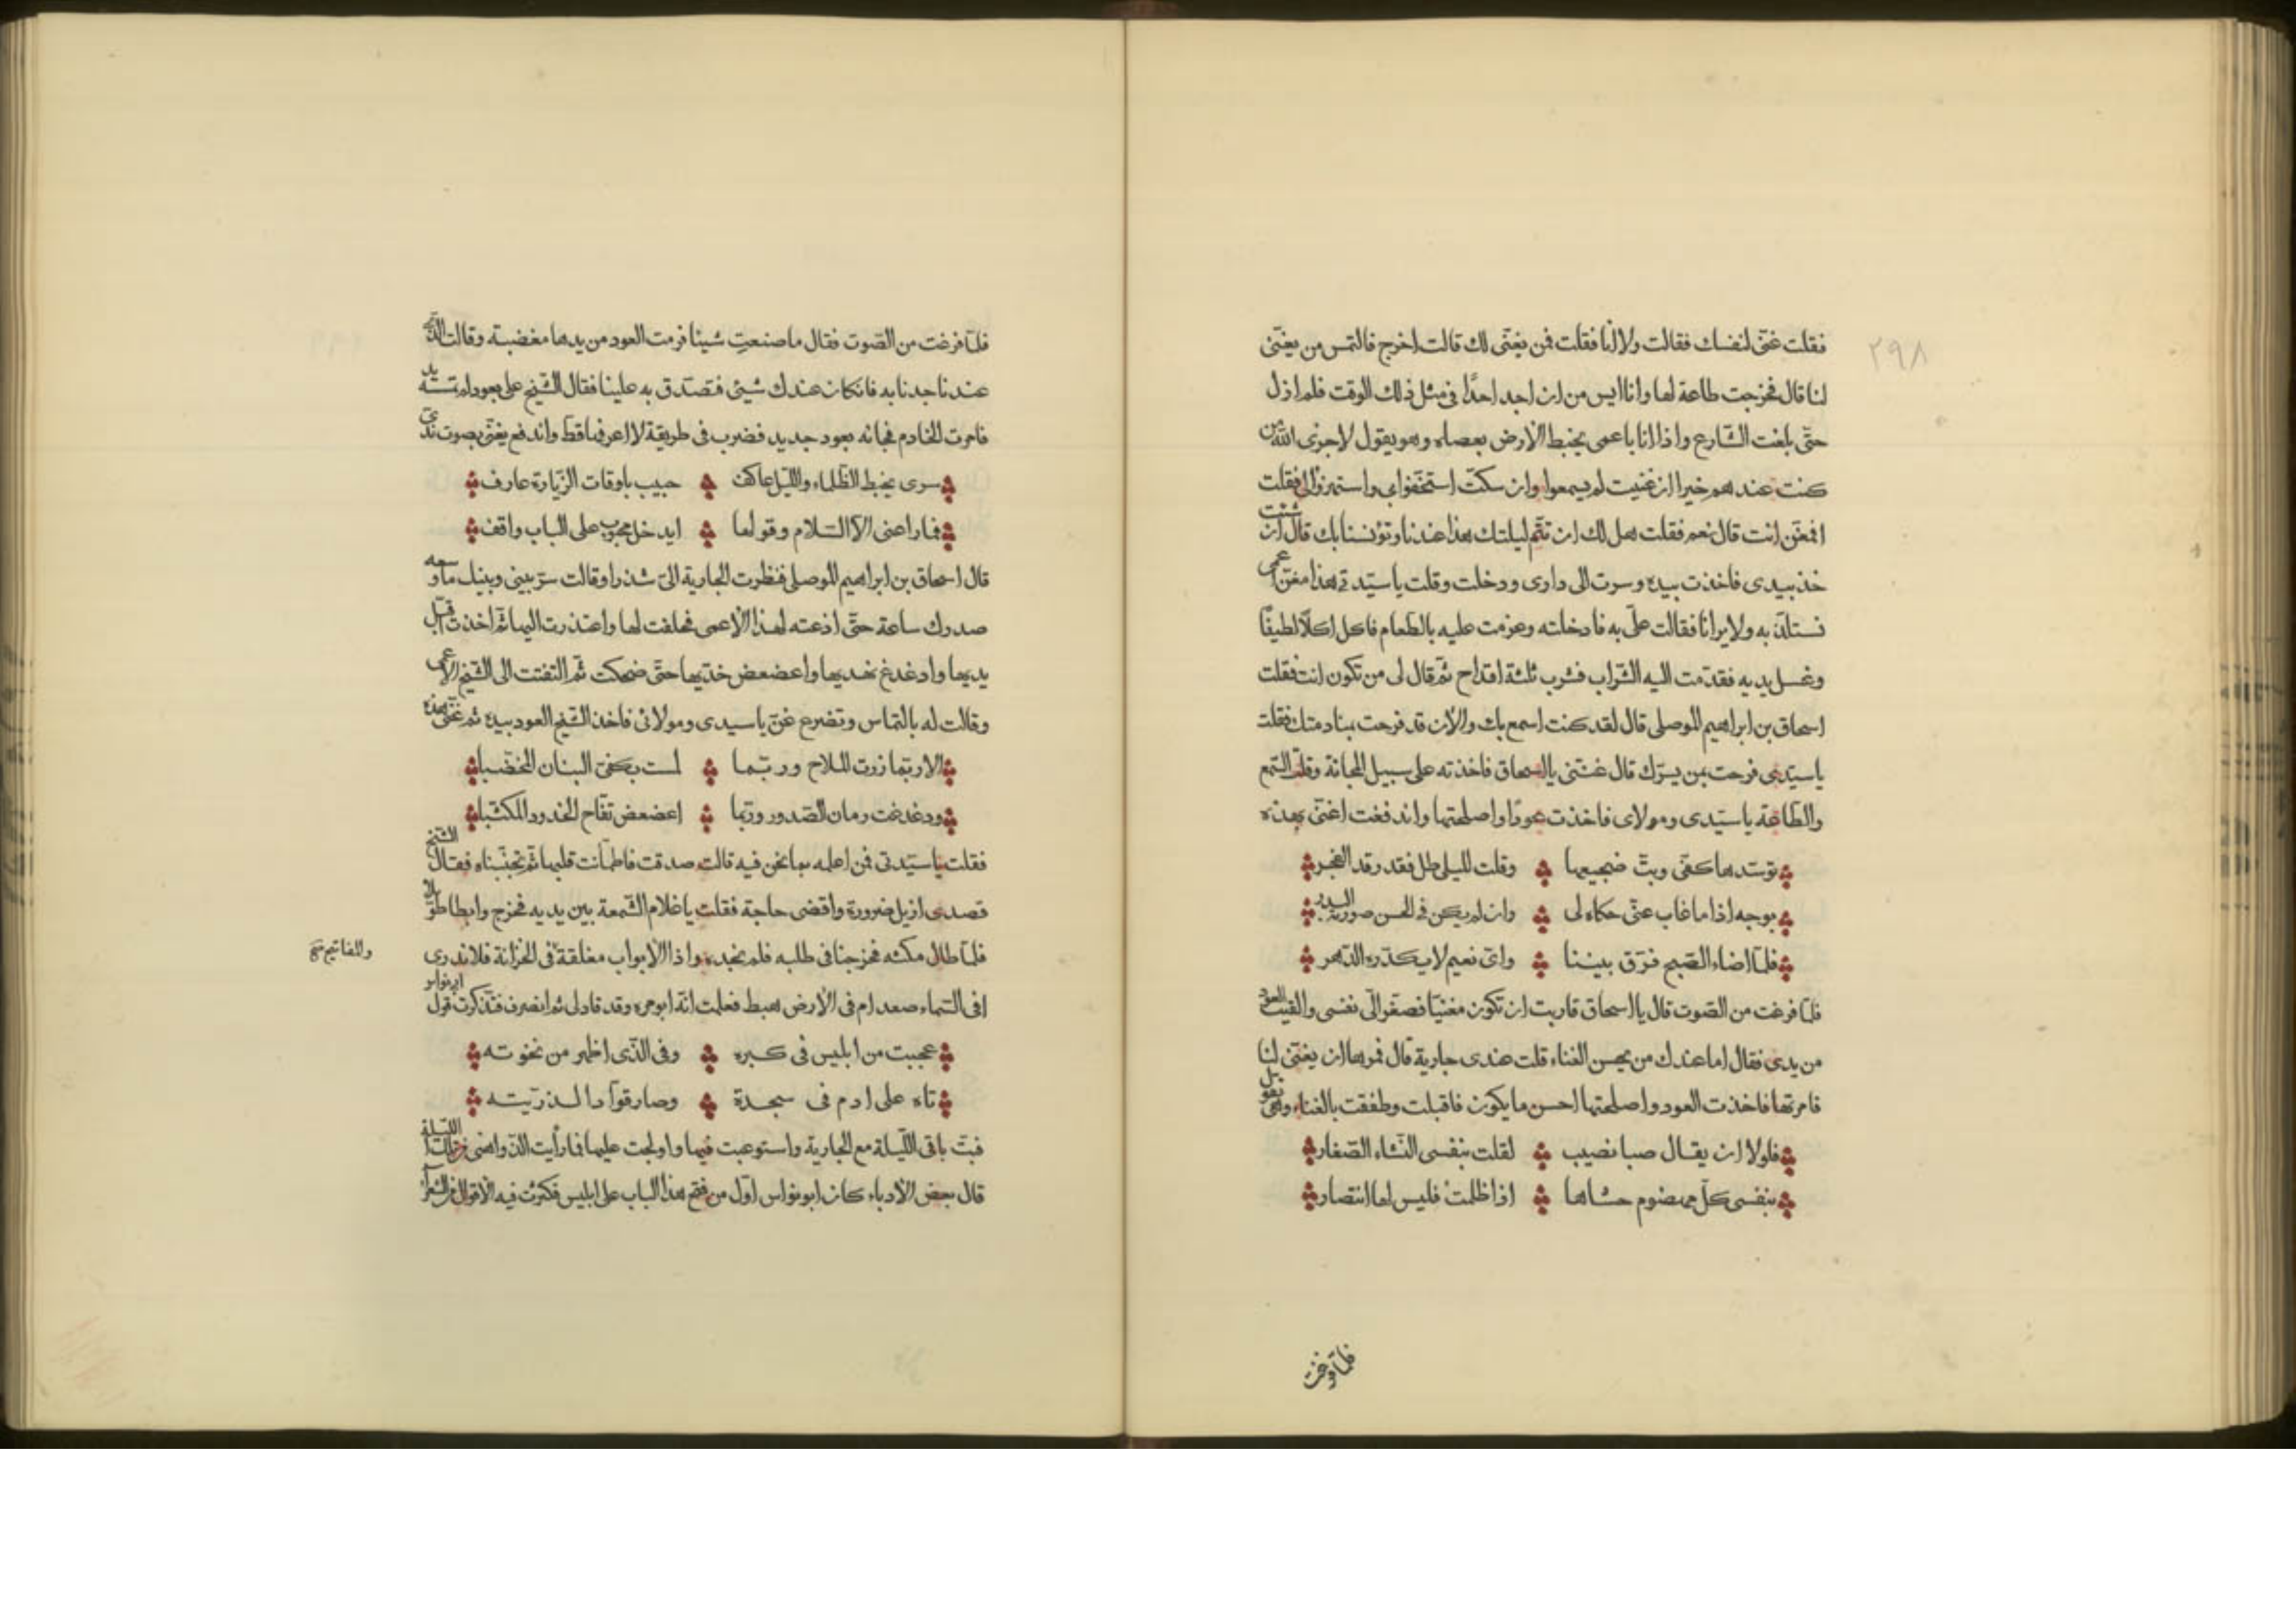 ٢٩٨
فقلت غنّى لنفسك فقالت ولا لنا فقلت فمن يغنّى لك قالت اخرج فالتمس من يغنّى
لنا قال فخرجت طاعة لها وانا ايس من ان اجد احدًا فى مثل ذلك الوقت فلم ازل
حتّى بلغت الشّارع واذا انا باعمى يخبط الارض بعصاه وهو يقول لا جزى اللّه من
كنت عندهم خيرا ان غنيت لم يسمعوا وان سكتّ استخفوا بى واستهزؤا بى فقلت
افمغنّ انت قال نعم فقلت هل لك ان تتمّ ليلتك هذا عندنا وتؤنسنا بك قال ان شئت
خذ بيدى فاخذت بيده وسرت الى دارى ودخلت وقلت يا سيّدتى هذا مغنّ اعمى
نستلذّ به ولا يرانا فقالت علىّ به فادخلته وعزمت عليه بالطّعام فاكل اكلًا لطيفًا
وغسل يديه فقدّمت اليه الشّراب فشرب ثلثة اقداح ثمّ قال لى من تكون انت فقلت
اسحاق بن ابراهيم الموصلى قال لقد كنت اسمع بك والان قد فرحت بمنادمتك فقلت
يا سيّدى فرحت بمن يسرّك قال غنّنى يا اسحاق فاخذته على سبيل المجانة وقلت السّمع
والطّاعة يا سيّدى ومولاى فاخذت عودًا واصلحتها واندفعت اغنّى بهذه
توسّدها كفّى وبتّ ضجيعها وقلت لليلى طل فقد رقد الفجر
بوجه اذا ما غاب عنّى حكاه لى وان لم يكن فى الحسن صورته البدر
فلمّا اضاء الصّبح فرّق بيننا واىّ نعيم لا يكدّره الدّهر
فلمّا فرغت من الصّوت قال يا اسحاق قاربت ان تكون مغنيّا فصغّر الىّ نفسى والقيت العود
من يدى فقال اما عندك من يحسن الغناء قلت عندى جارية قال فمرها ان يغنّى لنا
فامرتها فاخذت العود واصلحتها احسن ما يكون فاقبلت وطفقت بالغناء وهى تقول
فلولا ان يقال صبا نصيب لقلت بنفسى النّشاء الصّغار
بنفسى كلّ مهضوم حشاها اذا ظلمت فليس لها انتصار
فلمّا فرغت
فلمّا فرغت من الصّوت فقال ما صنعتِ شيئا فرمت العود من يدها مغضبة وقالت الّذى
عندنا جدنا به فان كان عندك شيئ فتصدّق به علينا فقال الشّيخ علىّ بعود لم تسّه يد
فامرت الخادم فجائه بعود جديد فضرب فى طريقة لا اعرفها قطّ واندفع يغنّى بصوت ندىّ
سرى يخبط الظّلماء واللّيل عاكف حبيب باوقات الزّيارة عارف
فما راعنى الّا السّلام وقولها ايدخل محبوب على الباب واقف
قال اسحاق بن ابراهيم الموصلى فنظرت الجارية الىّ شذرا وقالت سرّ بينى وبينك ما وسعه
صدرك ساعة حتّى اذعته لهذا الاعمى فحلفت لها واعتذرت اليها ثمّ اخذت اقبّل
يديها وادغدغ نهديها واعضعض خدّيها حتّى ضحكت ثمّ التفتت الى الشّيخ الاعمى
وقالت له بالتماس وتضرع غنّ يا سيدى ومولائى فاخذ الشّيخ العود بيده ثم غنّى بهذه
الا ربّما زرت الملاح وربّما لمست بكفىّ البنان المخضّبا
ودغدغت رمان الصّدور وربّما اعضعض تفّاح الخدود المكتّبا
فقلت يا سيّدتى فمن اعلمه بما نحن فيه قالت صدقت فاطمأنت قلبها ثمّ تجنّبناه فقال الشّيخ
قصدى ازيل ضرورة واقضى حاجة فقلت يا غلام الشّمعة بين يديه فخرج وابطا طويلا
فلمّا طال مكثه فخرجنا فى طلبه فلم نجده واذا الابواب مغلقة والمفاتيح فى الخزانة فلا ندرى
افى السّماء صعد ام فى الارض هبط فعلمت انّه ابو مره وقد قاد لى ثم انصرف فتذكرت قول ابى نواس
عجبت من ابليس فى كبره وفى الذّى اظهر من نخوته
تاه على ادم فى سجدة وصار قوّادا لذرّيته
فبتّ باقى اللّيلة مع الجارية واستوعبت فيها واولجت عليها فما رأيت الذّ واهنى من تلك اللّيلة
قال بعض الادباء كان ابو نواس اوّل من فتح هذا الباب على ابليس فكثرت فيه الاقوال من الشعرآء